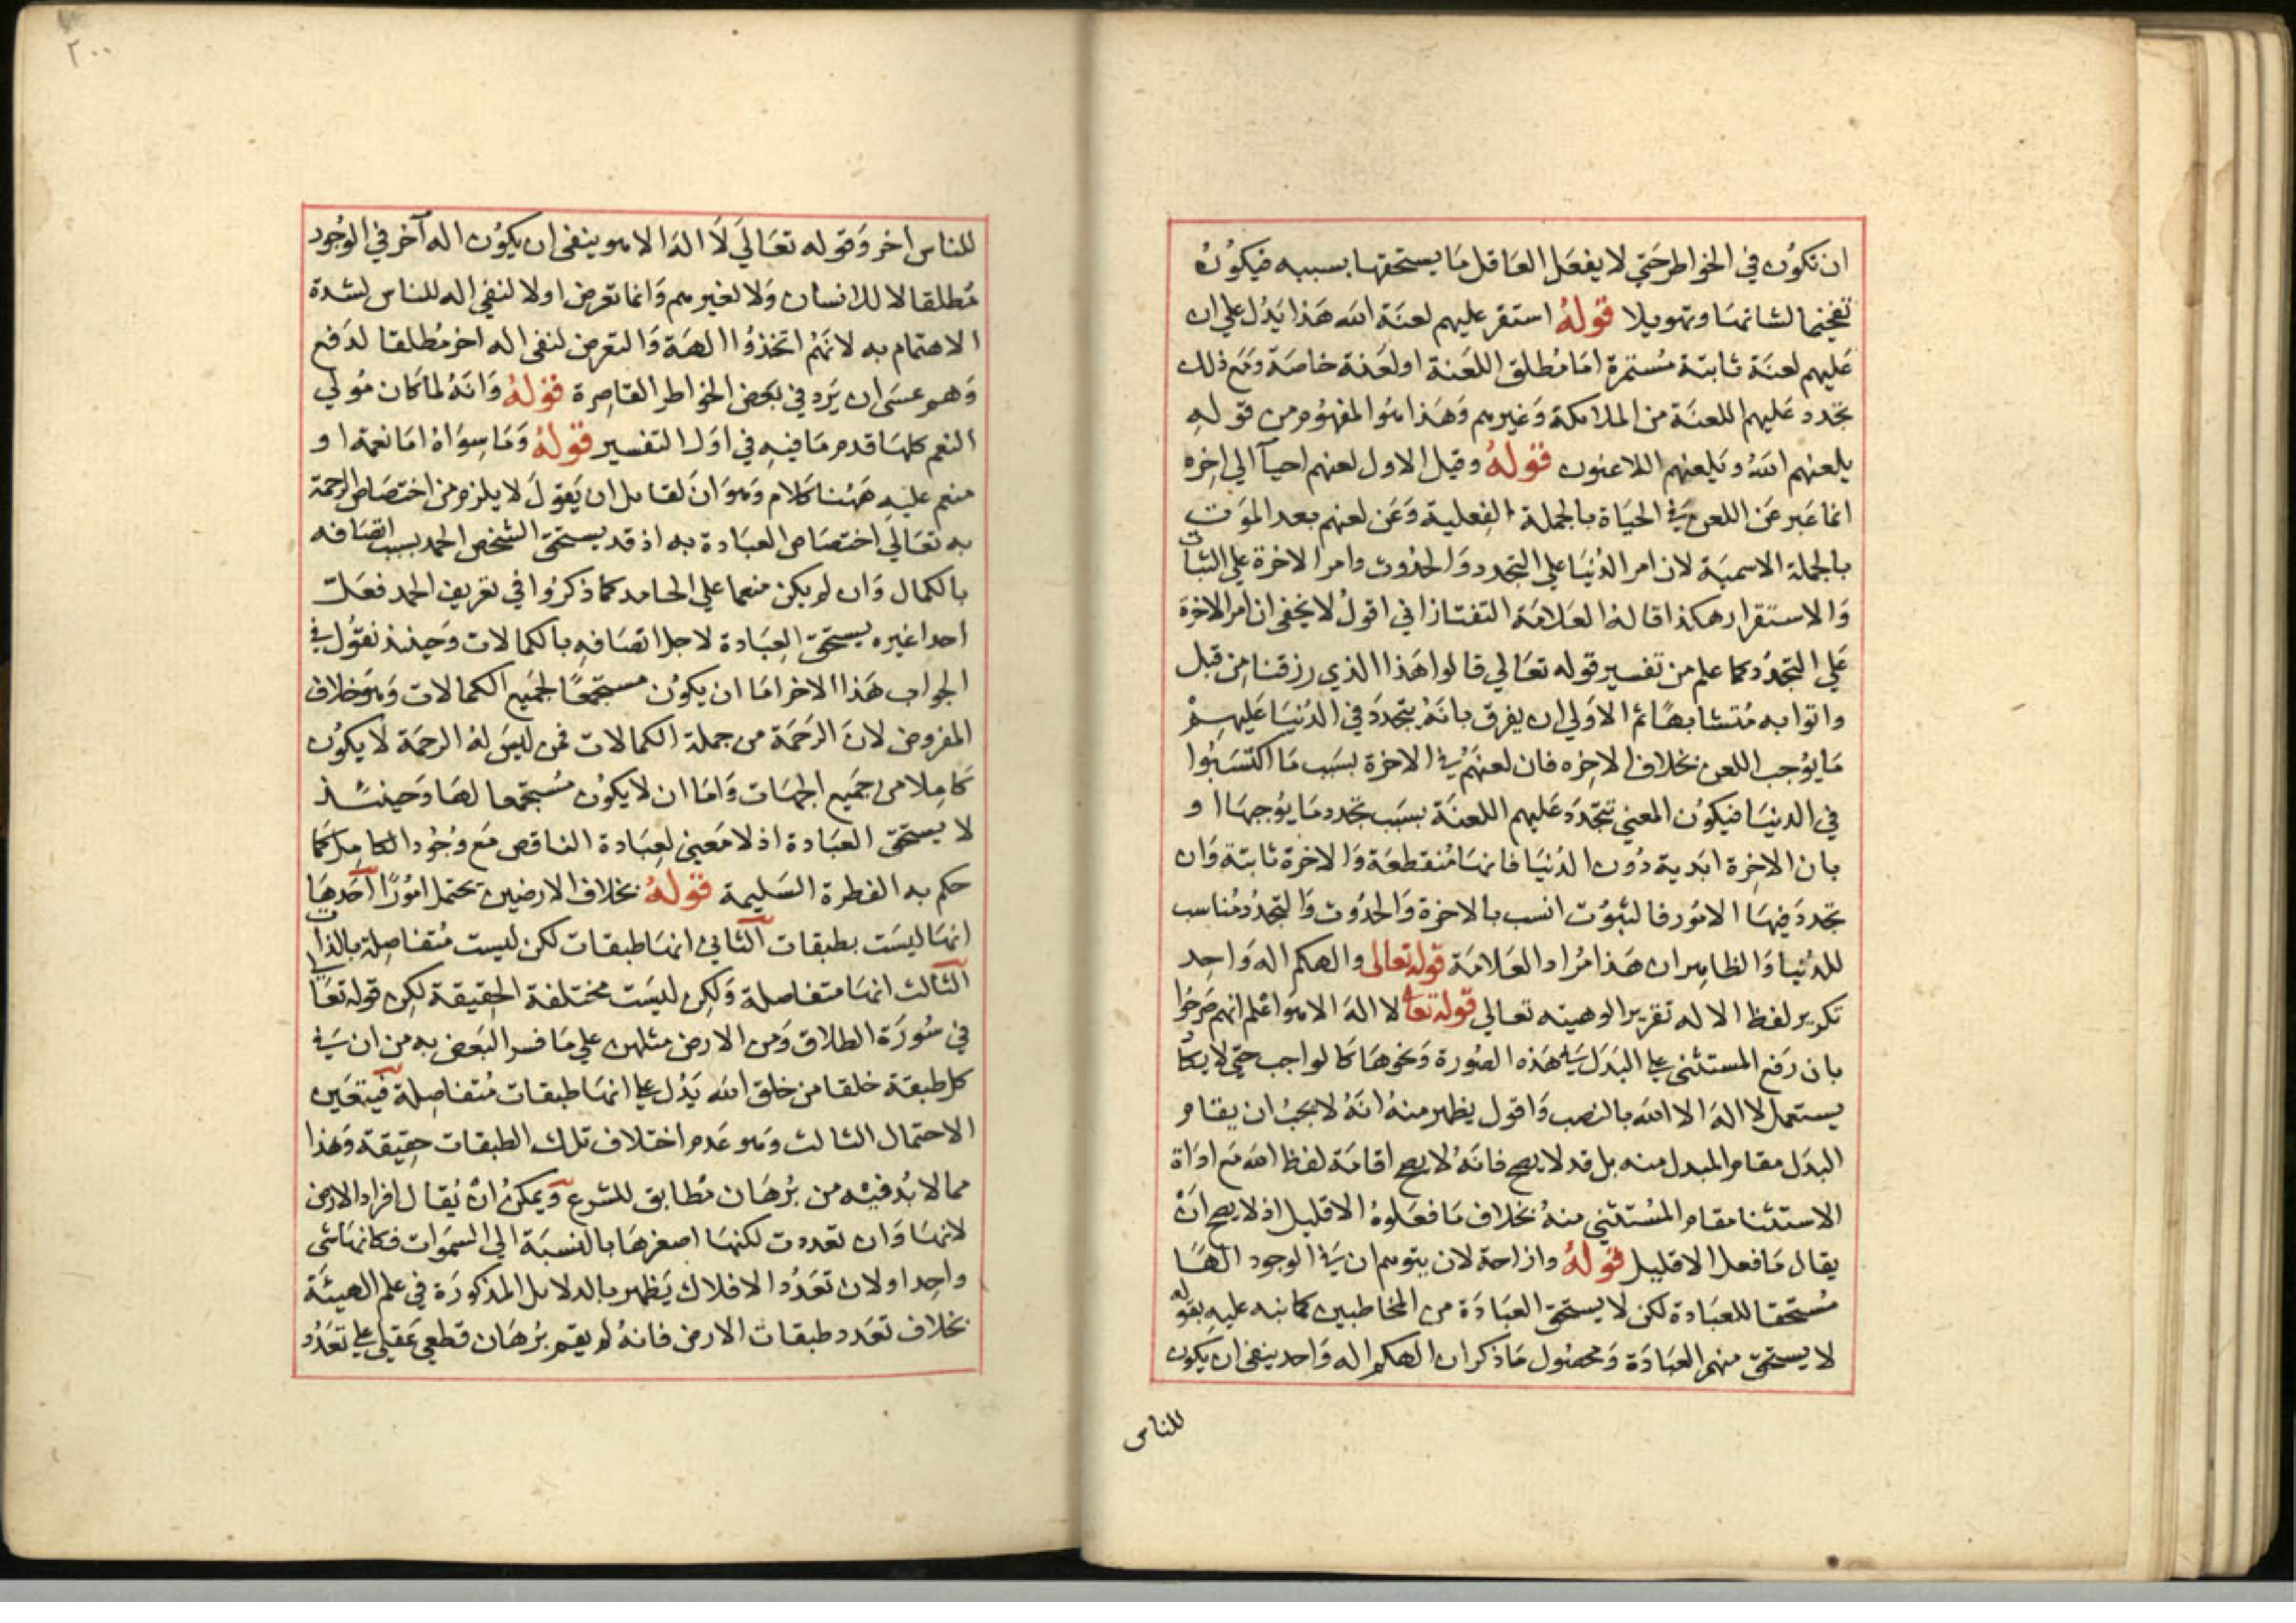 ان تكون في الخواطر حَتي لا يفعَل العَاقل مَا يستحقها بسببه فيكوُنُ
تفخيما لشانها وتهويلا قولهُ استقر عليهم لعنَة الله هَذا يَدُل علي ان
عَليهم لعنَة ثابتَة مُستمرة امَا مُطلق اللعَنة او لعَنة خاصَة وَمَع ذلك
تجدد عَليهم اللعنَة من الملائكة وَغيرهم وَهَذا هوَ المفهُوم من قولهِ
يلعنهم اللهُ وَيَلعنهم اللاعنون قولهُ وقيل الاول لعنهم احيآ الي اخره
انما عَبر عَن اللعن في الحيَاة بالجملة الفِعلية وَعَن لعنهم بعد الموَت
بالجملة الاسميَة لان امر الدُنيَا علي التجدد وَالحدُوث وامر الاخرة علي الثبات
وَالاستقرار هكذا قالهُ العَلامَة التفتازاني اقولُ لا يخفي ان امر الاخرَة
عَلي التجَدُد كما علم من تفسير قوله تعَالي قالوا هَذا الذي رزقنا مِن قبل
واتوا به مُتشابهًا ثم الاوَلي ان يفرق بانهُ يتجدَدَ في الدُنيَا عَليهِمْ
مَا يوُجب اللعن بخلاف الاخِره فان لعنهُمْ في الاخرة بسَبب مَا اكتسَبُوا
في الدنيَا فيكونُ المعني تتجدَدَ عَليهم اللعنَة بسَبب تجدد مَا يوُجبهَا او
بان الاخِرة ابَدية دُون الدُنيَا فانهَا مُنقطعَة وَالاخرة ثابتة وَان
تجددَ فيهَا الامُور فالثبوُت انسب بالاخرة وَالحدُوث وَالتجدُد مُناسب
للدُنيا وَالظاهِر ان هَذا مُرَاد العَلامَة قوله تعالى والهكم اله وَاحِد
تكرير لفظ الاله تقرير الوهيته تعالي قوله تعا لا الهَ الا هوَ اعْلم انهم صَرحُوا
بان رَفع المستثني علي البَدَل في هَذه الصُورة وَنحوهَا كالواجب حتي لا يكادُ
يستعمل لا الهَ الا اللهَ بالنصب وَاقول يظهر منهُ انهُ لا يجبُ ان يقام
البدَل مقام المبدل منه بل قد لا يصح فانهُ لا يصح اقامَة لفظ الله مَع ادَاة
الاستثنا مقام المُستثني منهُ بخلاف مَا فعَلوهُ الا قليل اذ لا يصح انْ
يقال مَا فعل الا قليل قولهُ وازاحة لان يتوهم ان في الوجود الهًا
مُستحقا للعبَادة لكن لا يستحق العبَادَة من المخاطبين كما نبه عليهِ بقوله
لا يستحق منهم العبَادَة وَمحصُول مَا ذكر ان الهكم اله وَاحد ينفي ان يكون
للناس
٢٠٠
للناس اخر وَقوله تعَالي لَا الهَ الا هو ينفي ان يكوُن اله آخر في الوجُود
مُطلقا لا للانسان وَلا لغيرهم وَانما تعرض اولا لنفي اله للناس لشدة
الاهتمام به لانهُم اتخذوُا الهَة وَالتعرض لنفي اله اخر مُطلقا لدَفع
وَهم عسَى ان يَرد في بعض الخواطر القاصِرة قولهُ وَانهُ لما كان مُولي
النعم كلهَا قدم مَا فيهِ في اوَل التفسير قولهُ وَمَا سِوَاهُ امَا نعمَة او
منعم عليهِ هَهُنا كلام وَهوَ انَ لقايل ان يَقولَ لا يلزم من اختصَاص الرحمَة
به تعَالي اختصَاص العبَادة به اذ قد يستحق الشخص الحمد بسبب اتصَافه
بالكمال وَان لم يكن منعما علي الحامد كما ذكرُوا في تعريف الحمد فعَلَ
احدا غيره يستحق العِبَادة لاجل اتصَافهِ بالكمالات وَحينئذ نقوُل في
الجواب هَذا الاخر امَا ان يكوُن مستجمعًا لجمَيع الكمالات وَهوَ خلاف
المفروض لانَ الرَحمَة من جملة الكمالات فمن ليسَ لهُ الرحمَة لا يكوُن
كامِلا من جمَيع الجهَات وَامَا ان لا يكوُن مُستجمعا لهَا وَحينئذ
لا يستحق العبَادة اذ لا مَعني لعِبَادة الناقص مَع وُجُود الكامِل كما
حكم به الفطرة السَليمة قولهُ بخلاف الارضين تحتمل امُورًا احَدهَا
انهَا ليسَت بطبقات الثاني انهَا طبقات لكن ليست مُتفاصِلة بالذات
الثالث انهَا متفاصلة وَلكِن ليسَت مختلفة الحقيقة لكِن قوله تعَالي
في سُورَة الطلاق وَمن الارض مثلهن علي مَا فسر البَعض به من ان في
كل طبقة خلقا من خلق الله يَدُل علي انهَا طبقات مُتفاصِلة فيتعَين
الاحتمال الثالث وَهو عَدم اختلاف تلك الطبقات حقيقة وَهذا
مما لا بُد فيهِ من بُرهَان مُطابق للشرع وَيمكنُ انْ يُقال افراد الارض
لانهَا وَان تعددت لكنهَا اصغرهَا بالنسبَة الي السمَوات فكانهَا شي
واحِد او لان تعَدُد الافلاك يَظهر بالدلايل المذكورَة في علم الهيئَة
بخلاف تعَدد طبقات الارض فانهُ لم يقم بُرهَان قطعي عَقلي علي تعَدُد